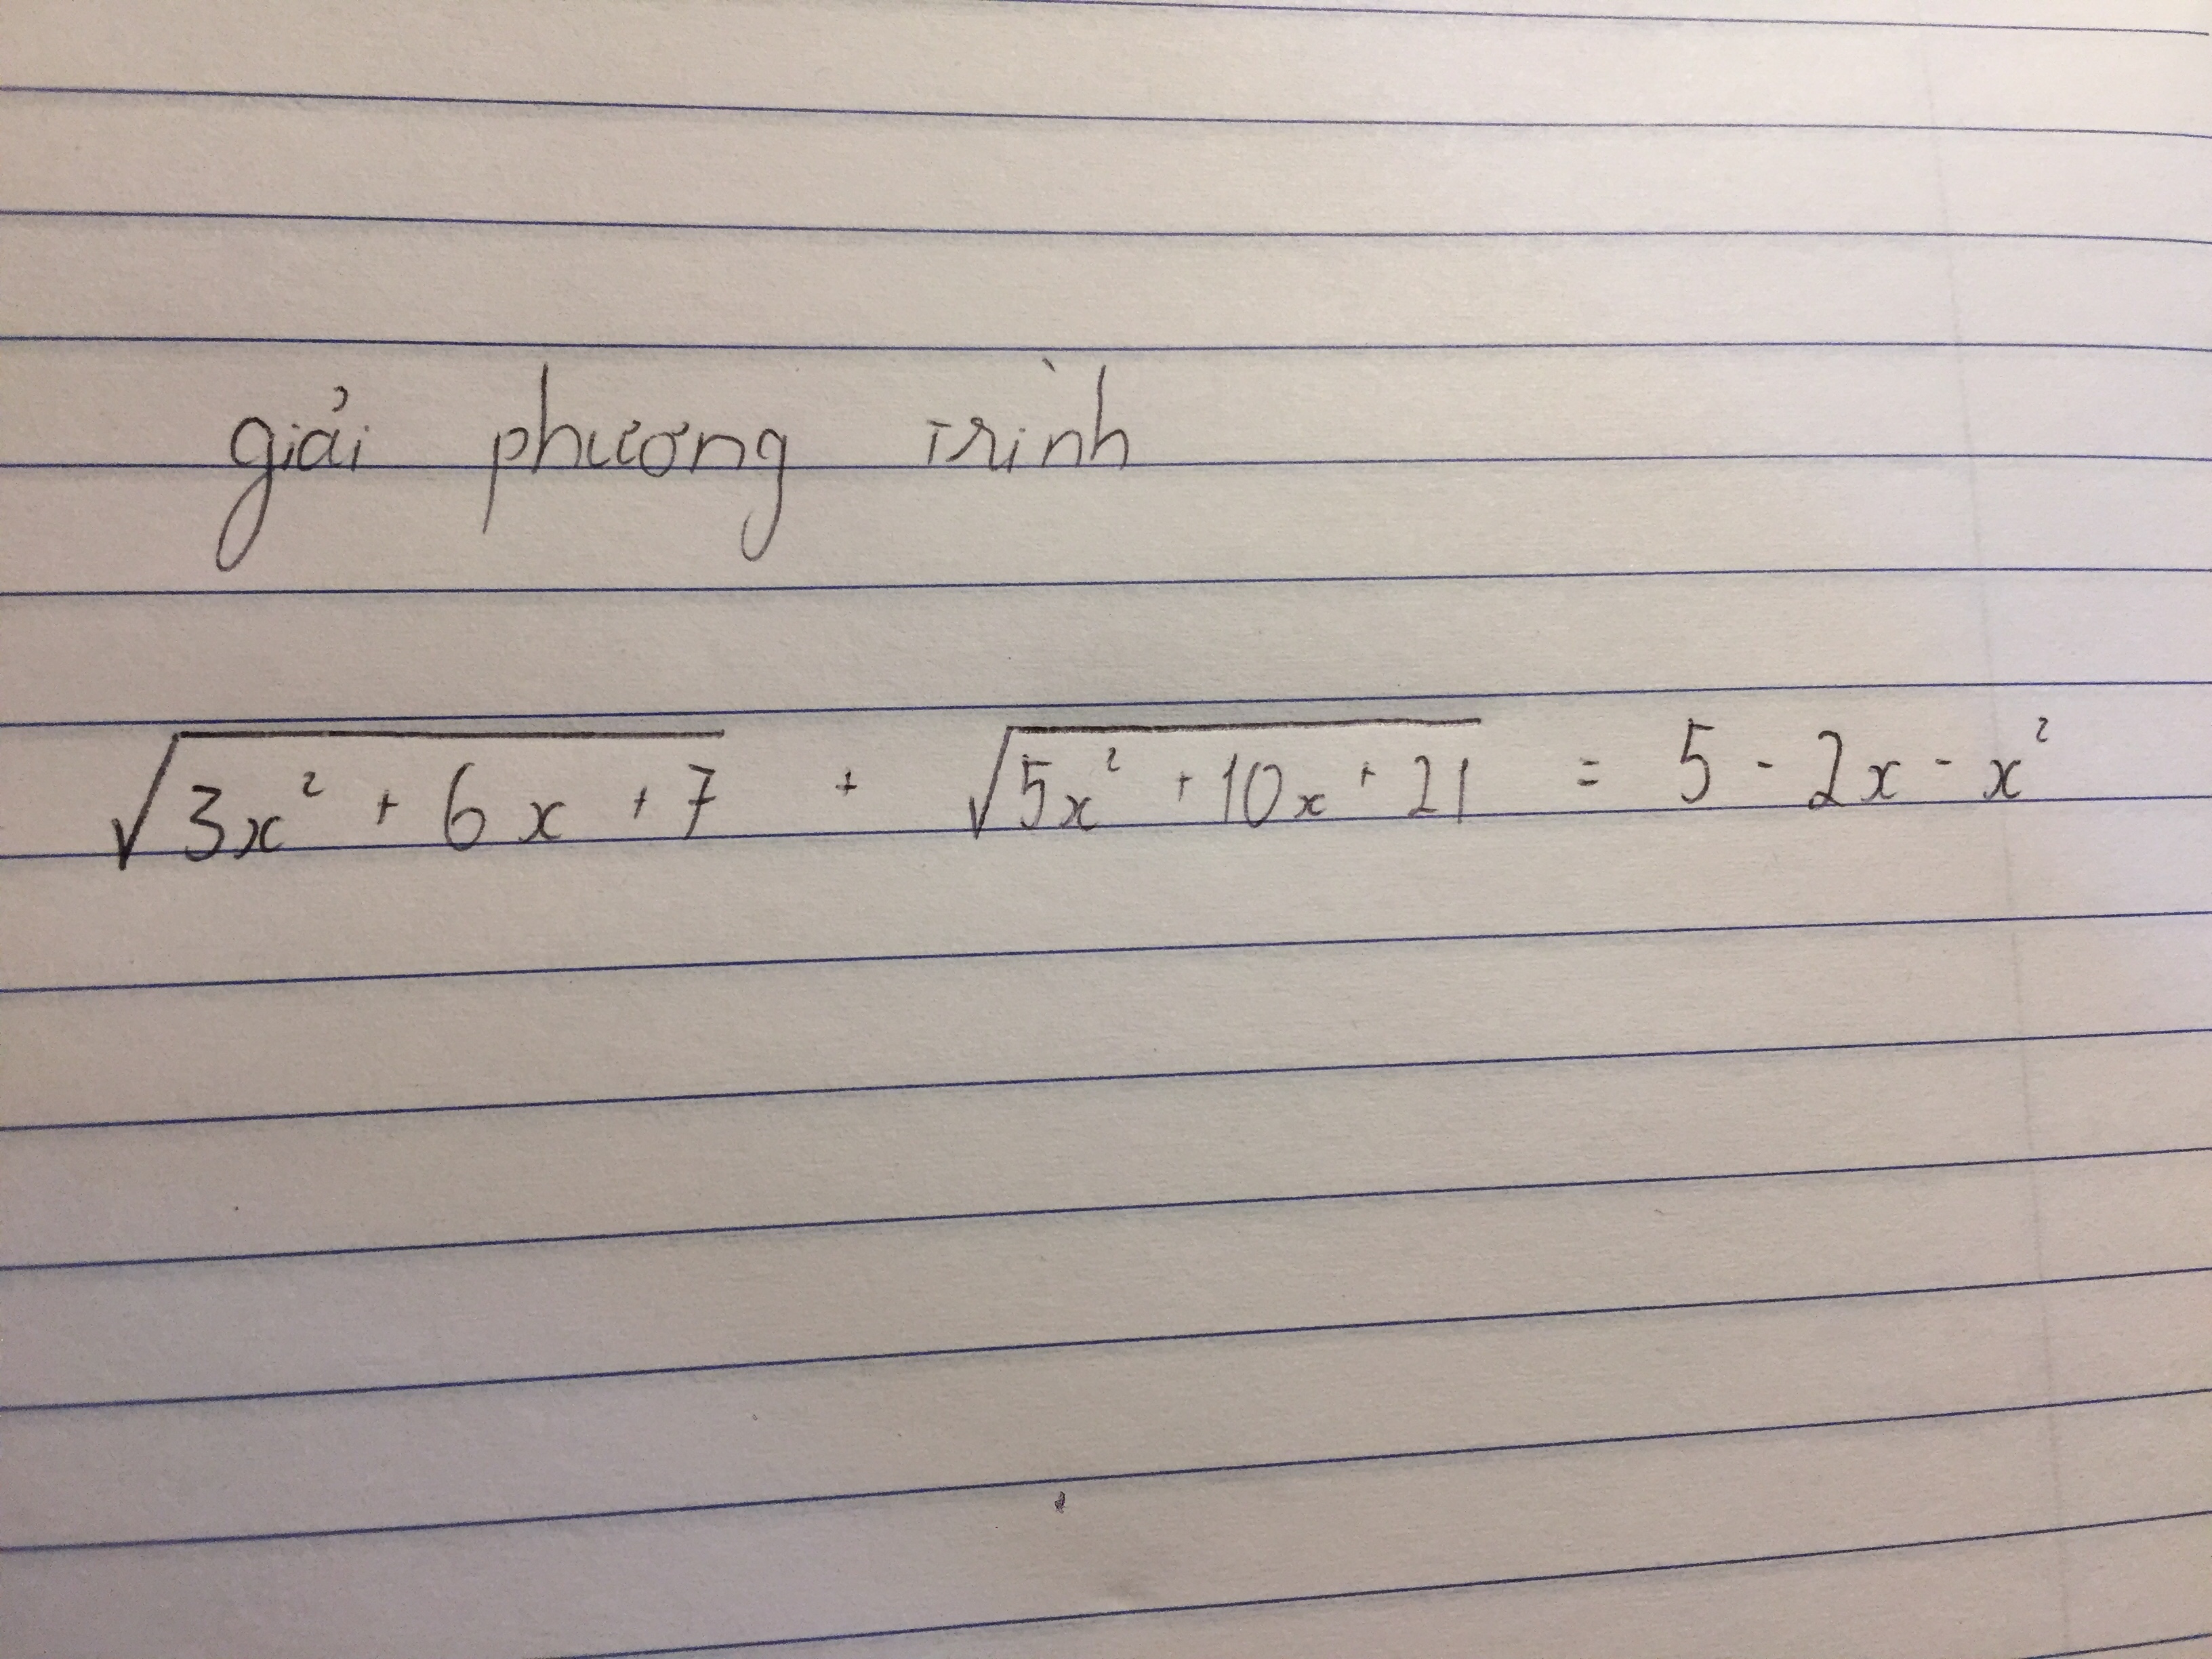 giải phương trình
√(3x² + 6x + 7) + √(5x² + 10x + 21) = 5 - 2x - x²